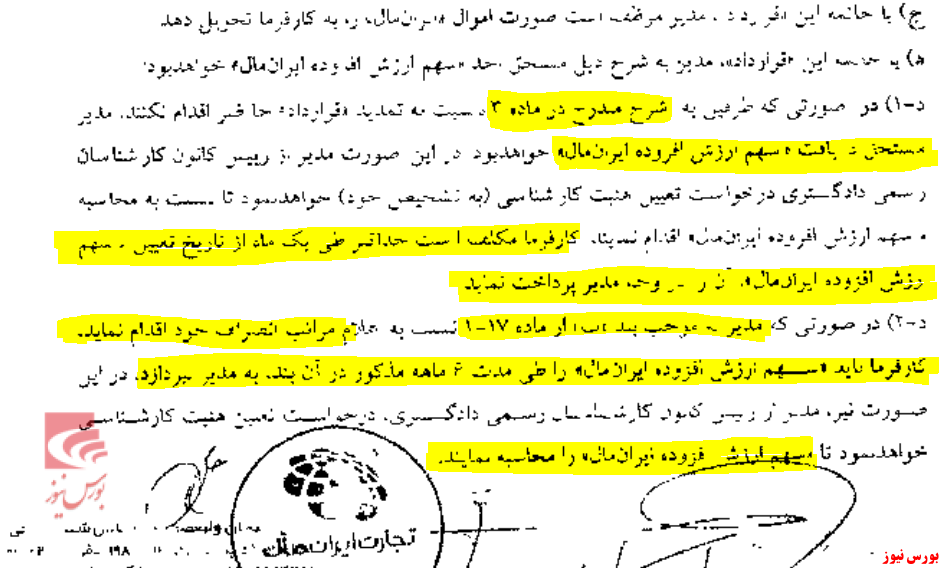 ج) با خاتمه این «قرارداد»، مدیر موظف است صورت اموال «ایران‌مال» را به کارفرما تحویل دهد.
د) با خاتمه این «قرارداد»، مدیر به شرح ذیل مستحق اخذ «سهم ارزش افزوده ایران‌مال» خواهدبود:
د-۱) در صورتی که طرفین به شرح مندرج در ماده ۳ نسبت به تمدید «قرارداد» حاضر اقدام نکنند، مدیر
مستحق دریافت «سهم ارزش افزوده ایران‌مال» خواهدبود در این صورت مدیر از رییس کانون کارشناسان
رسمی دادگستری درخواست تعیین هئیت کارشناسی (به تشخیص خود) خواهدنمود تا نسبت به محاسبه
«سهم ارزش افزوده ایران‌مال» اقدام نمایند. کارفرما مکلف است حداکثر طی یک ماه از تاریخ تعیین «سهم
ارزش افزوده ایران‌مال»، آن را در وجه مدیر پرداخت نماید.
د-۲) در صورتی که مدیر به موجب بند «ب» از ماده ۱۷-۱ نسبت به اعلام مراتب انصراف خود اقدام نماید،
کارفرما باید «سهم ارزش افزوده ایران‌مال» را طی مدت ۶ ماهه مذکور در آن بند، به مدیر بپردازد. در این
صورت نیز، مدیر از رییس کانون کارشناسان رسمی دادگستری، درخواست تعیین هئیت کارشناسی
خواهدنمود تا «سهم ارزش افزوده ایران‌مال» را محاسبه نمایند.
بورس نیوز
تجارت ایران مال
بورس نیوز